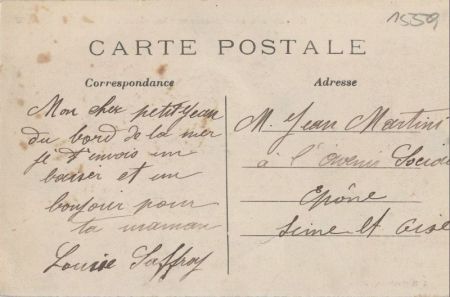 1559
CARTE POSTALE
Correspondance
Mon cher petit Jean
du bord de la mer
je t'envois un
baiser et un
bonjour pour
ta maman
Louise Saffroy
Adresse
M. Jean Martini
à l'Avenir Social
Epône
Seine et Oise